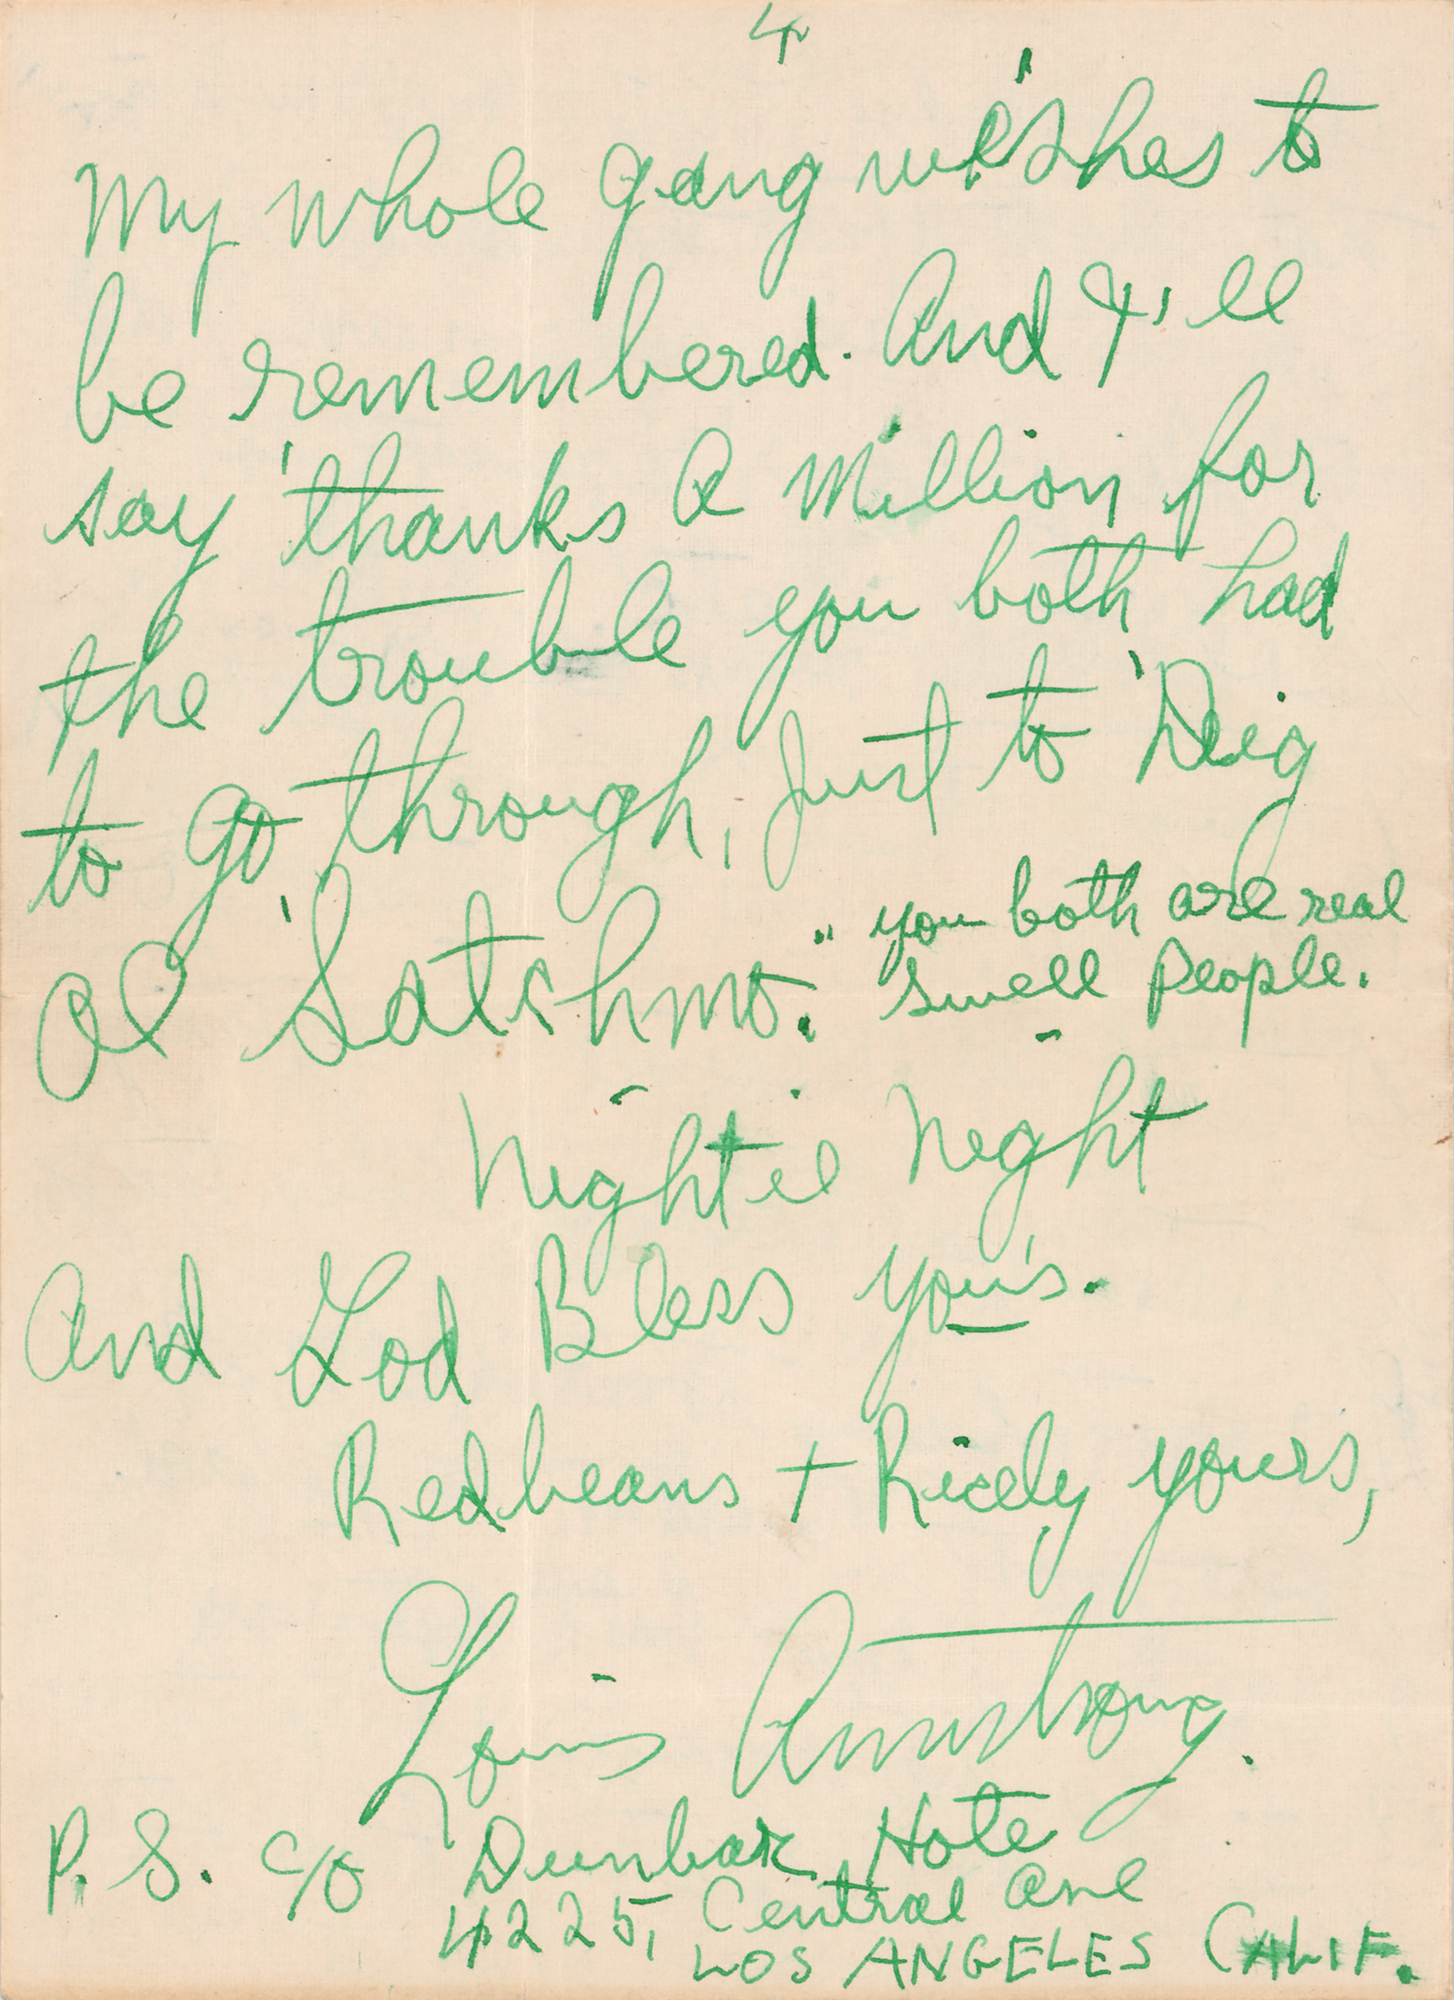 4
My whole gang wishes to
be remembered. And I'll
say 'thanks A Million for
the trouble you both had
to go through, just to 'Deig
Ol 'Satchmo." you both are real
swell people.
Nightie Night
And God Bless you's.
Redbeans + Ricely yours,
Louis Armstrong.
P. S. c/o Dunbar Hote
4225, Central Ave
LOS ANGELES CALIF.